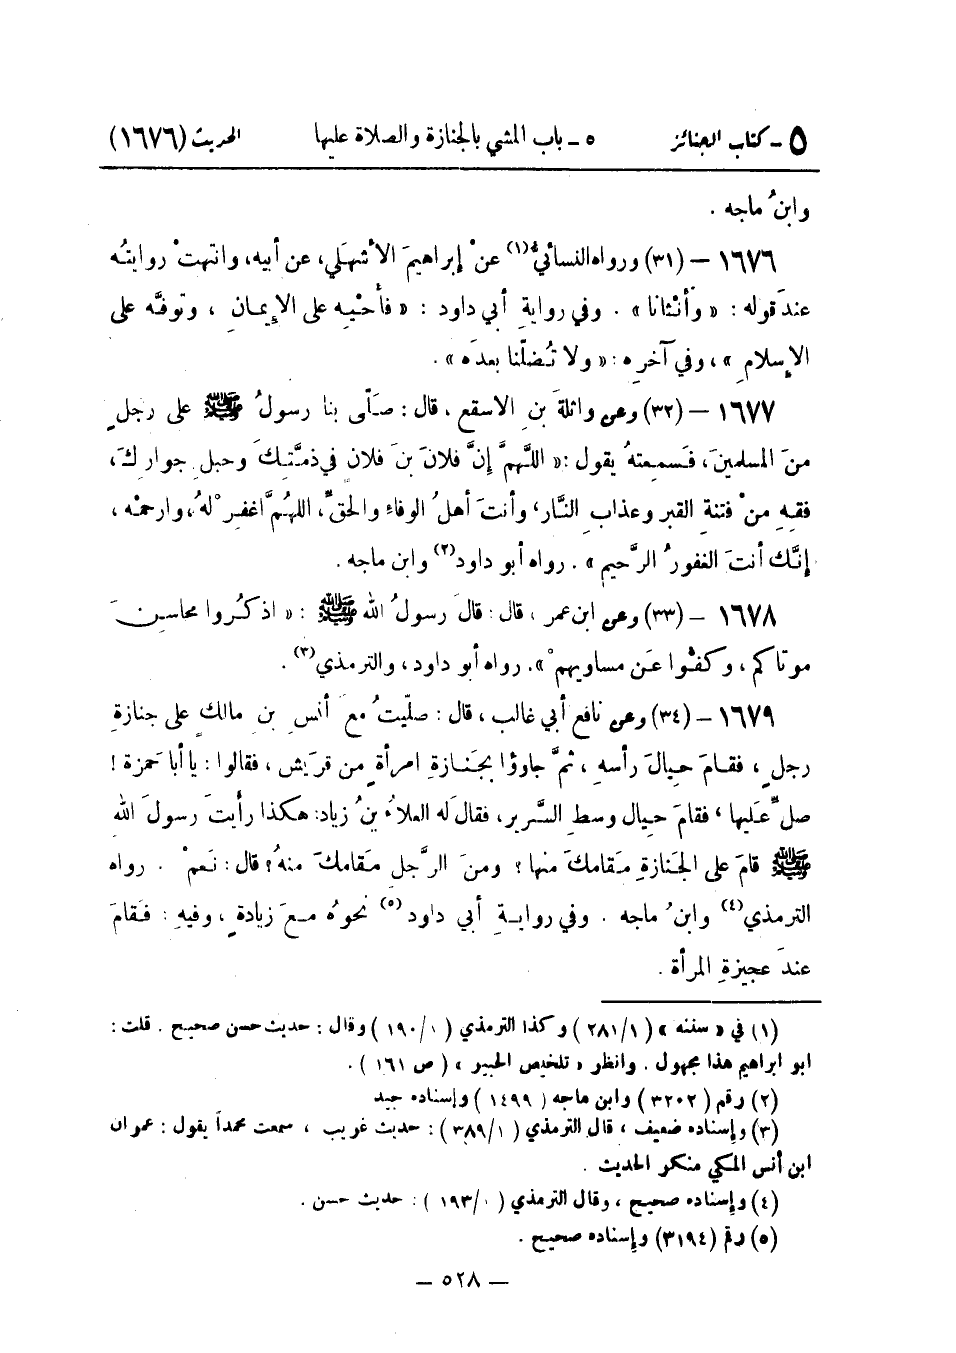 ٥ - كتاب الجنائز ٥ - باب المشي بالجنازة والصلاة عليها الحديث (١٦٧٦)
وابنُ ماجه .
١٦٧٦ – (٣١) ورواه النسائيُّ(١) عنْ إبراهيمَ الأشهَلي، عن أبيه، وانتهتْ روايتُه
عندَ قوله : « وأنْثانا » . وفي روايةِ أبي داود : « فأحْيِه على الإيمانِ ، وتوفَّه على
الإسلامِ »، وفي آخرِه : « ولا تُضلّنا بعدَه » .
١٦٧٧ – (٣٢) وعن واثلةَ بنِ الاسقع ، قال : صلّى بنا رسولُ ﷺ على رجلٍ
منَ المسلمينَ، فسمعتهُ يقول :« اللهمَّ إنَّ فلانَ بنَ فلانٍ في ذمَّتِكَ وحبلِ جوارِكَ،
فقِهِ منْ فتنةِ القبرِ وعذابِ النَّارِ، وأنتَ أهلُ الوفاءِ والحقِّ، اللهُمَّ اغفِرْ لهُ، وارحمْه ،
إنَّك أنتَ الغفورُ الرَّحيم » . رواه أبو داود(٢) وابن ماجه .
١٦٧٨ – (٣٣) وعن ابن عمر ، قال : قالَ رسولُ الله ﷺ : « اذكُروا محاسِنَ
موتاكم ، وكفُّوا عَن مساويهمْ ». رواه أبو داود ، والترمذي(٣) .
١٦٧٩ – (٣٤) وعن نافع أبي غالب ، قال : صلّيتُ معَ أنسِ بنِ مالكٍ على جنازةِ
رجلٍ ، فقامَ حِيالَ رأسهِ ، ثمَّ جاؤا بجَنازةِ امرأةٍ من قريش ، فقالوا : يا أبا حمزة !
صلِّ عَليها ، فقامَ حيال وسطِ السَّرير، فقالَ له العلاءُ بنُ زياد: هكذا رأيتَ رسولَ اللهِ
ﷺ قامَ على الجَنازةِ مَقامكَ منها ؟ ومنَ الرَّجلِ مَقامكَ منهُ؟ قال : نَعمْ . رواه
الترمذي(٤) وابنُ ماجه . وفي روايةِ أبي داود(٥) نحوُه معَ زيادةٍ ، وفيهِ : فَقامَ
عندَ عجيزةِ المرأة .
(١) في « سننه » ( ١/ ٢٨١ ) وكذا الترمذي ( ١/ ١٩٠ ) وقال : حديث حسن صحيح . قلت :
ابو ابراهيم هذا مجهول . وانظر « تلخيص الحبير » ( ص ١٦١ ) .
(٢) رقم ( ٣٢٠٢ ) وابن ماجه ( ١٤٩٩ ) وإسناده جيد
(٣) وإسناده ضعيف ، قال الترمذي ( ١/ ٣٨٩ ) : حديث غريب ، سمعت محمداً يقول : عمران
ابن أنس المكي منكر الحديث .
(٤) وإسناده صحيح ، وقال الترمذي ( ٠/ ١٩٣ ) : حديث حسن .
(٥) رقم (٣١٩٤) وإسناده صحيح .
– ٥٢٨ –